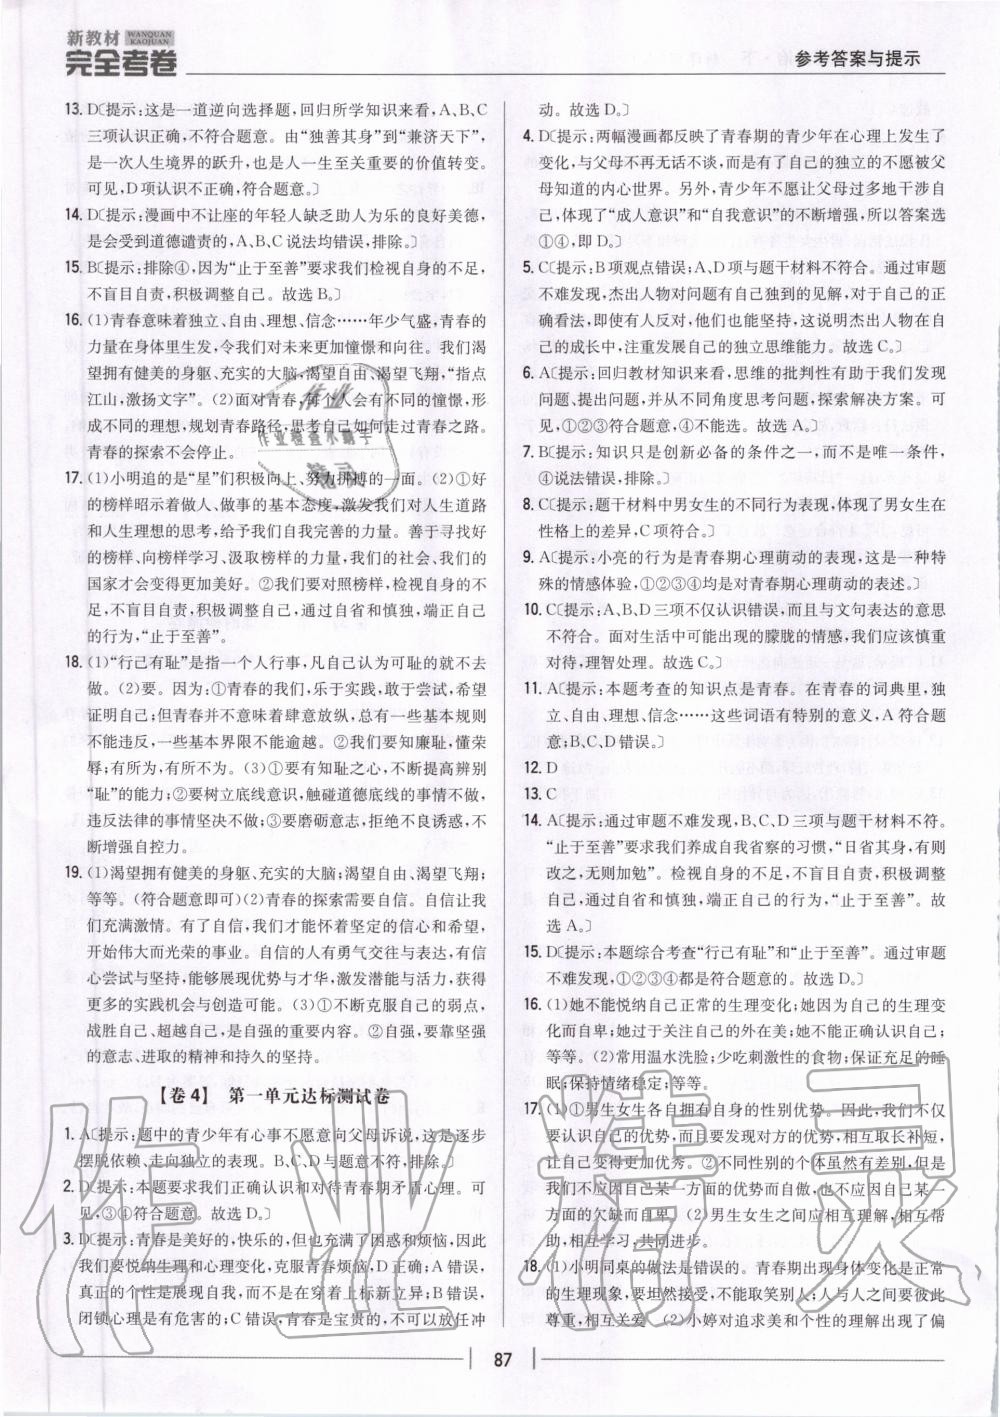 新教材 WANQUAN KAOJUAN
完全考卷
参考答案与提示
13. D〔提示:这是一道逆向选择题,回归所学知识来看,A、B、C
三项认识正确,不符合题意。由“独善其身”到“兼济天下”,
是一次人生境界的跃升,也是人一生至关重要的价值转变。
可见,D项认识不正确,符合题意。〕
14. D〔提示:漫画中不让座的年轻人缺乏助人为乐的良好美德,
是会受到道德谴责的,A、B、C说法均错误,排除。〕
15. B〔提示:排除④,因为“止于至善”要求我们检视自身的不足,
不盲目自责,积极调整自己。故选B。〕
16. (1)青春意味着独立、自由、理想、信念……年少气盛,青春的
力量在身体里生发,令我们对未来更加憧憬和向往。我们渴
望拥有健美的身躯、充实的大脑,渴望自由、渴望飞翔,“指点
江山,激扬文字”。(2)面对青春,每个人会有不同的憧憬,形
成不同的理想,规划青春路径,思考自己如何走过青春之路。
青春的探索不会停止。
17. (1)小明追的是“星”们积极向上、努力拼搏的一面。(2)①好
的榜样昭示着做人、做事的基本态度,激发我们对人生道路
和人生理想的思考,给予我们自我完善的力量。善于寻找好
的榜样、向榜样学习、汲取榜样的力量,我们的社会、我们的
国家才会变得更加美好。②我们要对照榜样,检视自身的不
足,不盲目自责,积极调整自己,通过自省和慎独,端正自己
的行为,“止于至善”。
18. (1)“行己有耻”是指一个人行事,凡自己认为可耻的就不去
做。(2)要。因为:①青春的我们,乐于实践,敢于尝试,希望
证明自己;但青春并不意味着肆意放纵,总有一些基本规则
不能违反,一些基本界限不能逾越。②我们要知廉耻,懂荣
辱;有所为,有所不为。(3)①要有知耻之心,不断提高辨别
“耻”的能力;②要树立底线意识,触碰道德底线的事情不做,
违反法律的事情坚决不做;③要磨砺意志,拒绝不良诱惑,不
断增强自控力。
19. (1)渴望拥有健美的身躯、充实的大脑;渴望自由、渴望飞翔;
等等。(符合题意即可)(2)青春的探索需要自信。自信让我
们充满激情。有了自信,我们才能怀着坚定的信心和希望,
开始伟大而光荣的事业。自信的人有勇气交往与表达,有信
心尝试与坚持,能够展现优势与才华,激发潜能与活力,获得
更多的实践机会与创造可能。(3)①不断克服自己的弱点,
战胜自己、超越自己,是自强的重要内容。②自强,要靠坚强
的意志、进取的精神和持久的坚持。
【卷4】 第一单元达标测试卷
1. A〔提示:题中的青少年有心事不愿意向父母诉说,这是逐步
摆脱依赖、走向独立的表现。B、C、D与题意不符,排除。〕
2. D〔提示:本题要求我们正确认识和对待青春期矛盾心理。可
见,③④符合题意。故选D。〕
3. D〔提示:青春是美好的,快乐的,但也充满了困惑和烦恼,因此
我们要悦纳生理和心理变化,克服青春的烦恼,D正确;A错误,
真正的个性是展现自我,而不是在穿着上标新立异;B错误,
闭锁心理是有危害的;C错误;青春是宝贵的,不可以放任冲
动。故选D。〕
4. D〔提示:两幅漫画都反映了青春期的青少年在心理上发生了
变化,与父母不再无话不谈,而是有了自己的独立的不愿被父
母知道的内心世界。另外,青少年不愿让父母过多地干涉自
己,体现了“成人意识”和“自我意识”的不断增强,所以答案选
①④,即D。〕
5. C〔提示:B项观点错误;A、D项与题干材料不符合。通过审题
不难发现,杰出人物对问题有自己独到的见解,对于自己的正
确看法,即使有人反对,他们也能坚持,这说明杰出人物在自
己的成长中,注重发展自己的独立思维能力。故选C。〕
6. A〔提示:回归教材知识来看,思维的批判性有助于我们发现
问题、提出问题,并从不同角度思考问题,探索解决方案。可
见,①②③符合题意,④不能选。故选A。〕
7. B〔提示:知识只是创新必备的条件之一,而不是唯一条件,
④说法错误,排除。〕
8. C〔提示:题干材料中男女生的不同行为表现,体现了男女生在
性格上的差异,C项符合。〕
9. A〔提示:小亮的行为是青春期心理萌动的表现,这是一种特
殊的情感体验,①②③④均是对青春期心理萌动的表述。〕
10. C〔提示:A、B、D三项不仅认识错误,而且与文句表达的意思
不符合。面对生活中可能出现的朦胧的情感,我们应该慎重
对待,理智处理。故选C。〕
11. A〔提示:本题考查的知识点是青春。在青春的词典里,独
立、自由、理想、信念……这些词语有特别的意义,A符合题
意;B、C、D错误。〕
12. D
13. C
14. A〔提示:通过审题不难发现,B、C、D三项与题干材料不符。
“止于至善”要求我们养成自我省察的习惯,“日省其身,有则
改之,无则加勉”。检视自身的不足,不盲目自责,积极调整自
己,通过自省和慎独,端正自己的行为,“止于至善”。故
选A。〕
15. D〔提示:本题综合考查“行己有耻”和“止于至善”。通过审题
不难发现,①②③④都是符合题意的。故选D。〕
16. (1)她不能悦纳自己正常的生理变化;她因为自己的生理变
化而自卑;她过于关注自己的外在美;她不能正确认识自己;
等等。(2)常用温水洗脸;少吃刺激性的食物;保证充足的睡
眠;保持情绪稳定;等等。
17. (1)①男生女生各自拥有自身的性别优势。因此,我们不仅
要认识自己的优势,而且要发现对方的优势,相互取长补短,
让自己变得更加优秀。②不同性别的个体虽然有差别,但是
我们不应因自己某一方面的优势而自傲,也不应因自己某一
方面的欠缺而自卑。(2)男生女生之间应相互理解,相互帮
助,相互学习,共同进步。
18. (1)小明同桌的做法是错误的。青春期出现身体变化是正常
的生理现象,要坦然接受,不能取笑别人;人与人之间要彼此
尊重,相互关爱。(2)小婷对追求美和个性的理解出现了偏
87
作业
作业检查小帮手
作业精灵